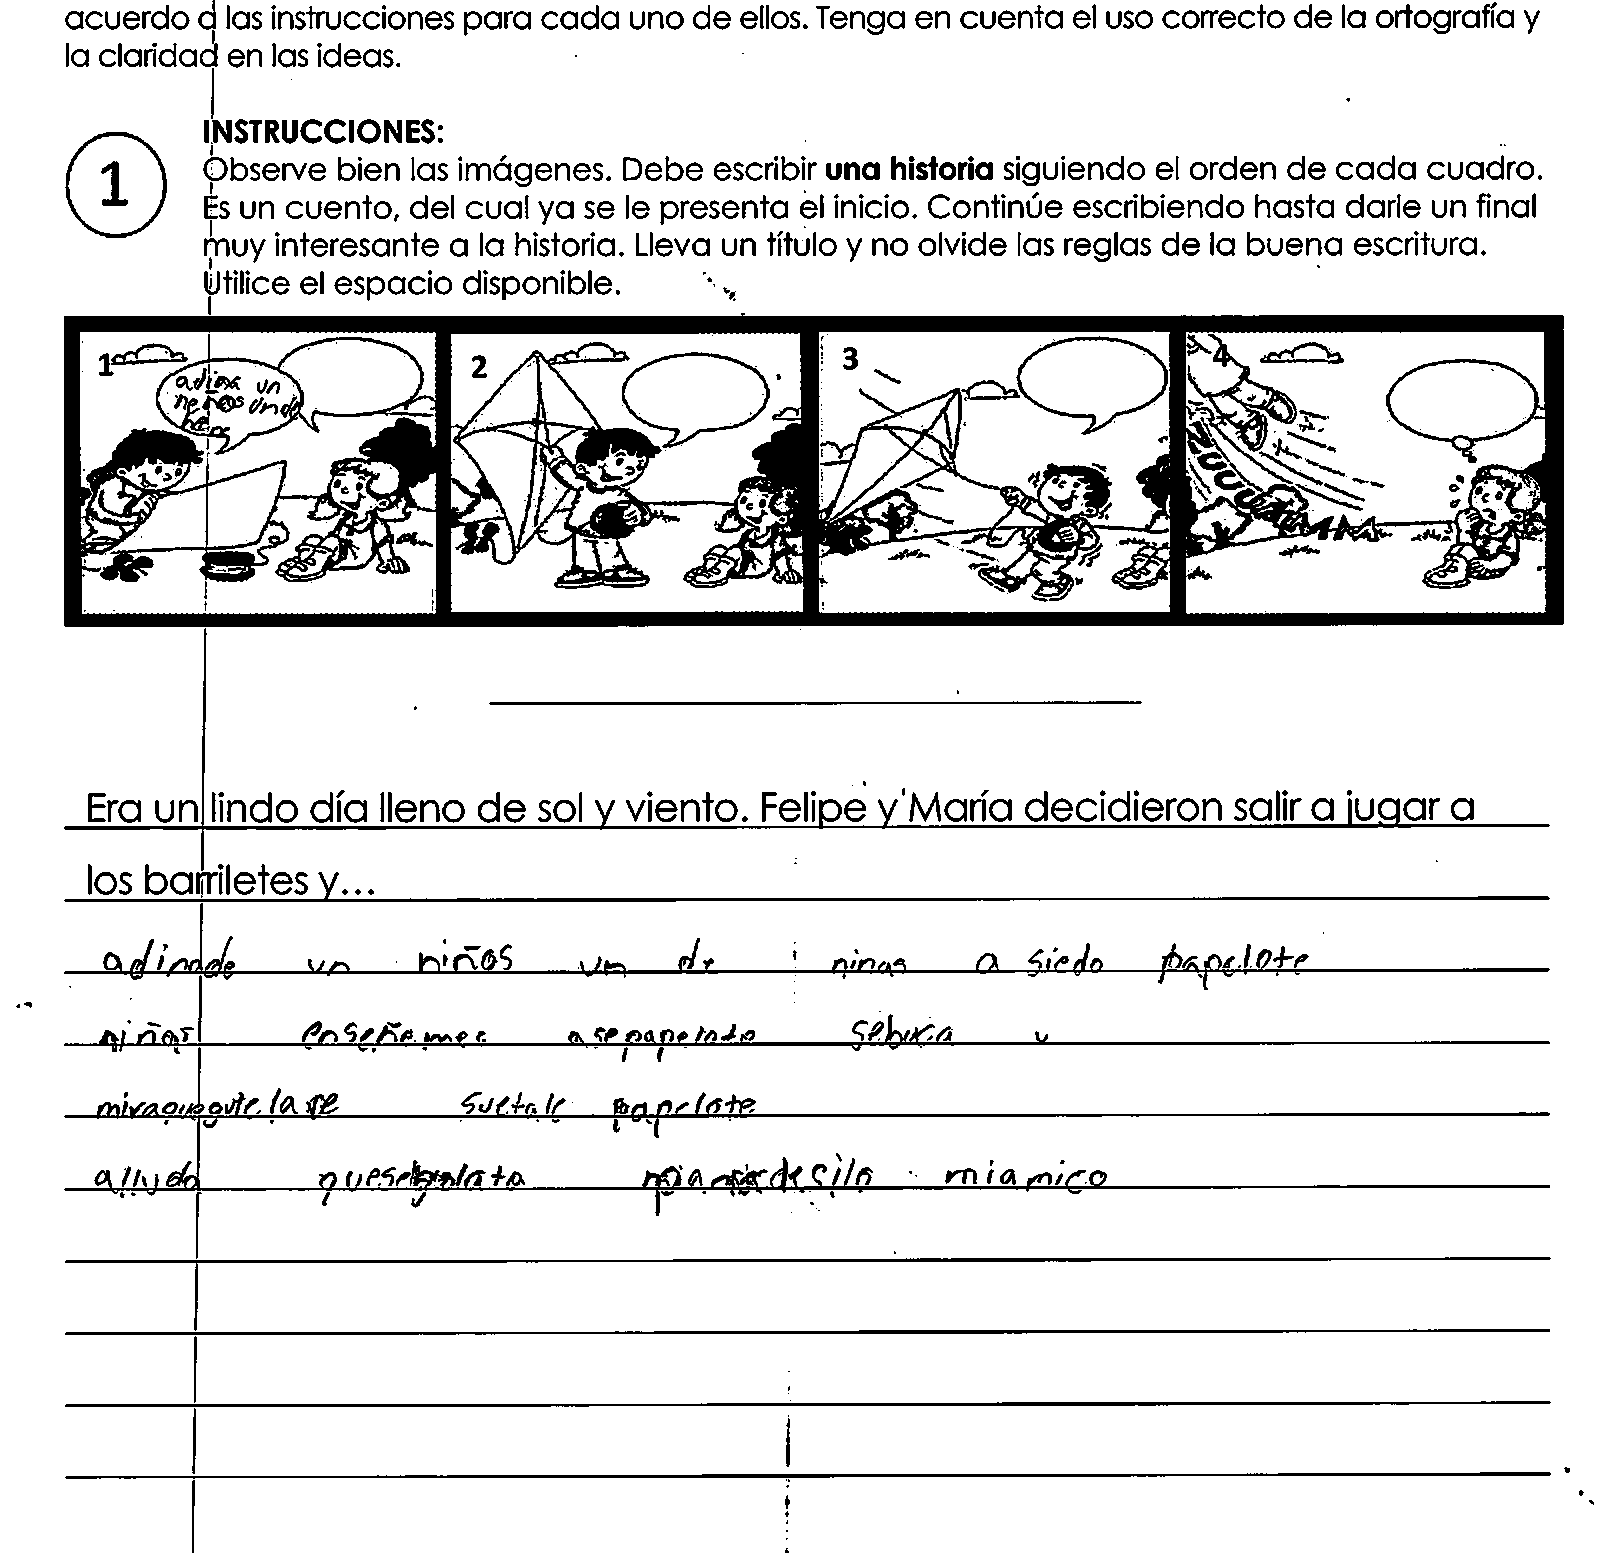 acuerdo a las instrucciones para cada uno de ellos. Tenga en cuenta el uso correcto de la ortografía y
la claridad en las ideas.
1
INSTRUCCIONES:
Observe bien las imágenes. Debe escribir una historia siguiendo el orden de cada cuadro.
Es un cuento, del cual ya se le presenta el inicio. Continúe escribiendo hasta darle un final
muy interesante a la historia. Lleva un título y no olvide las reglas de la buena escritura.
Utilice el espacio disponible.
1
un
2
3
4
Era un lindo día lleno de sol y viento. Felipe y María decidieron salir a jugar a
los barriletes y...
adinade un niños un de ninas a siedo papelote
niños
suetale papelote
alludo miamico